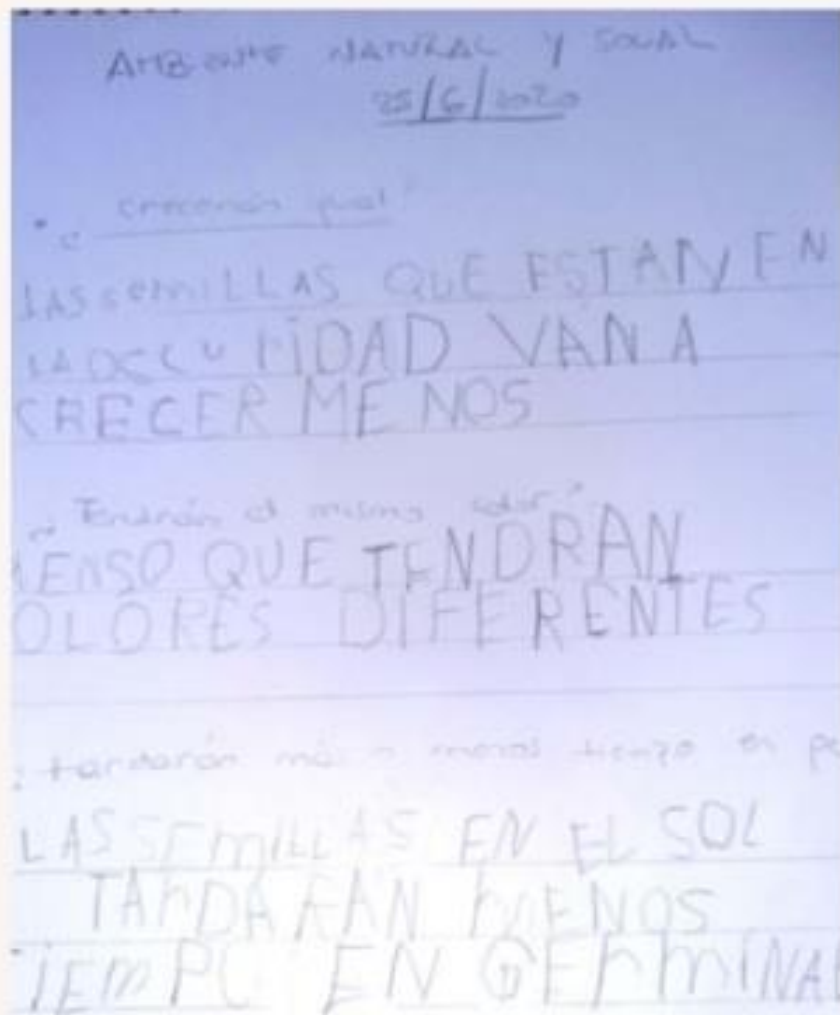 AMBIENTE NATURAL Y SOCIAL
25/6/2020
¿ Crecerán igual?
LAS SEMILLAS QUE ESTAN EN
LA OSCURIDAD VAN A
CRECER MENOS
¿ Tendrán el mismo color?
IENSO QUE TENDRAN
OLORES DIFERENTES
¿ tardarán más o menos tiempo en
LAS SEMILLAS EN EL SOL
TARDARAN MENOS
TIEMPO EN GERMINAR